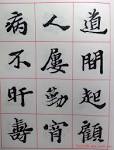 道間起顧
人屢勤宵
病不旰壽